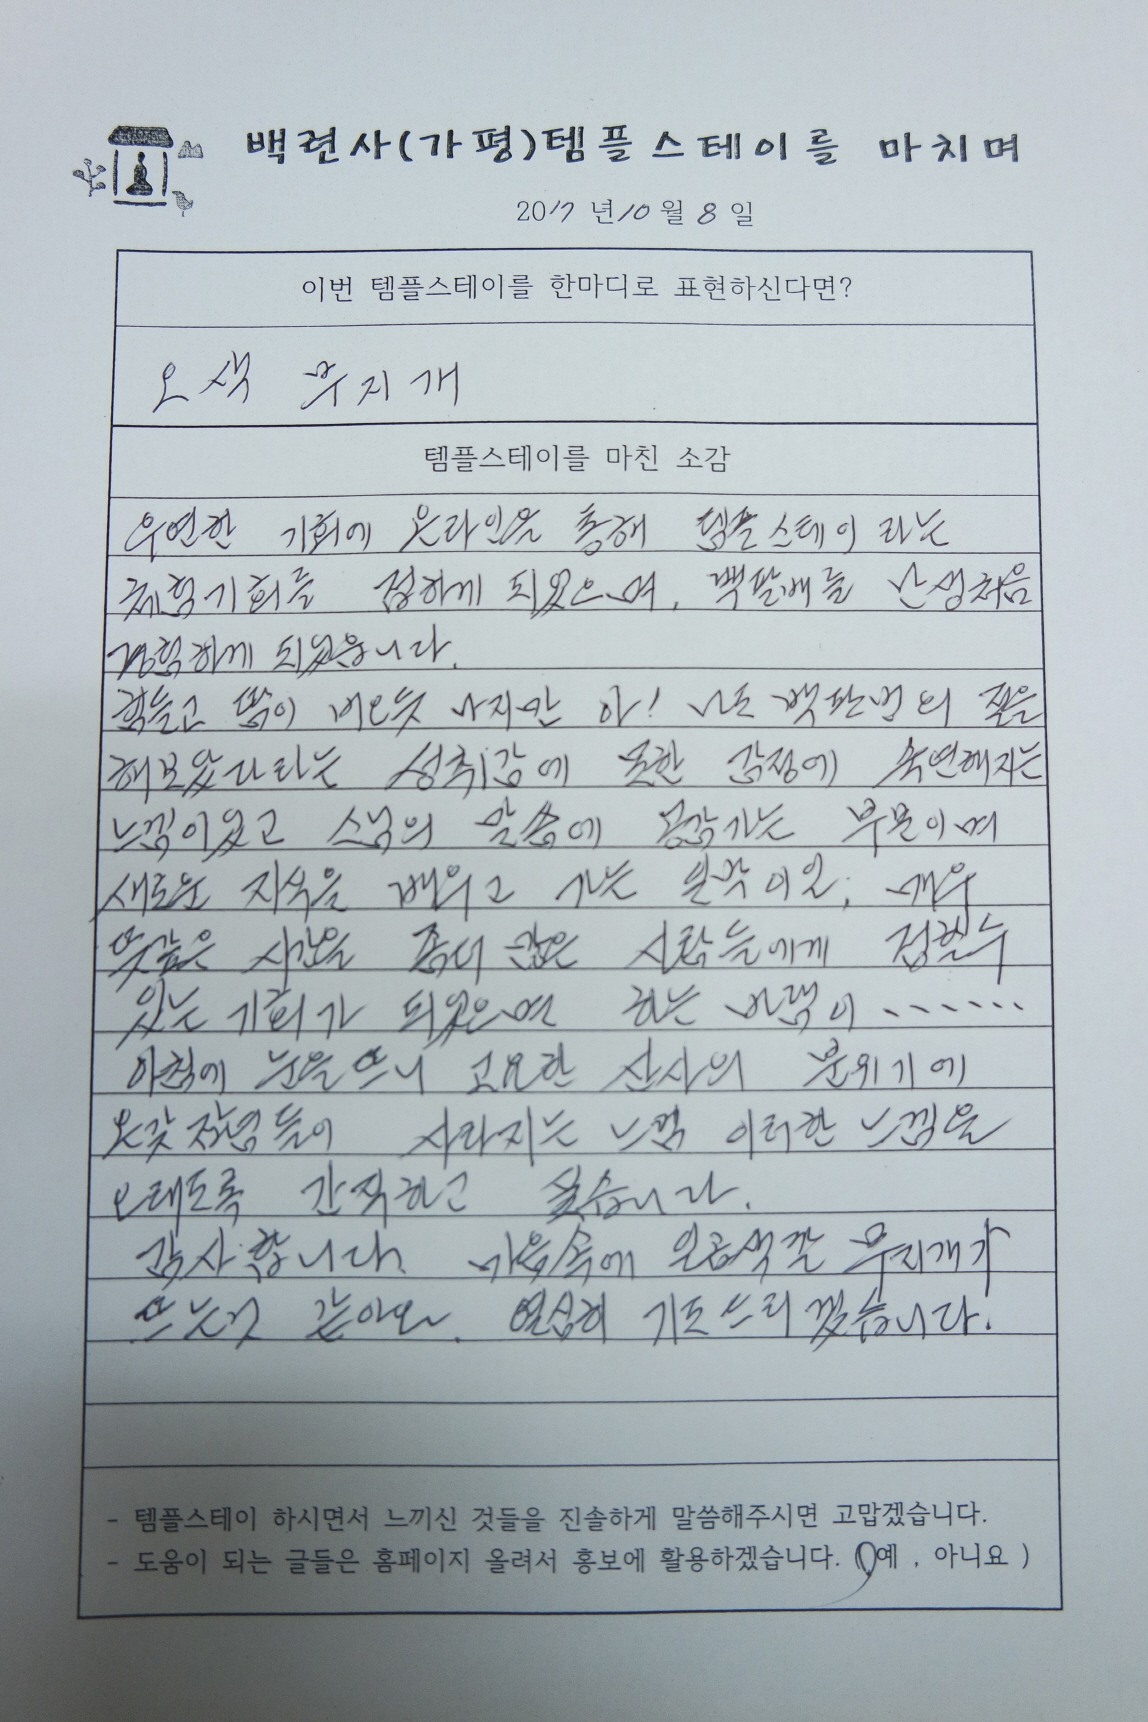 백련사(가평)템플스테이를 마치며
2017년 10월 8일
이번 템플스테이를 한마디로 표현하신다면?
오색 무지개
템플스테이를 마친 소감
우연한 기회에 온라인을 통해 템플스테이라는
체험기회를 접하게 되었으며, 백팔배를 난생처음
경험하게 되었읍니다.
힘들고 땀이 비오듯 나지만 아! 나도 백팔번의 절을
해보았다라는 성취감에 묘한 감정에 숙연해지는
느낌이었고 스님의 말씀에 공감가는 부분이며
새로운 지식을 배우고 가는 일박이일, 매우
뜻깊은 시간을 좀더 많은 사람들에게 접할수
있는 기회가 되었으면 하는 바램이 ......
아침에 눈을 뜨니 고요한 산사의 분위기에
온갖 잡념들이 사라지는 느낌 이러한 느낌을
오래도록 간직하고 싶습니다.
감사합니다. 마음속에 일곱색깔 무지개가
뜨는것 같아요. 열심히 기도드리겠습니다.
- 템플스테이 하시면서 느끼신 것들을 진솔하게 말씀해주시면 고맙겠습니다.
- 도움이 되는 글들은 홈페이지 올려서 홍보에 활용하겠습니다. (예 , 아니요 )